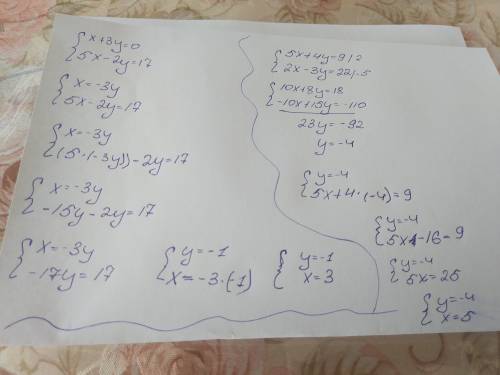 x+3y=0
5x-2y=17
x=-3y
5x-2y=17
x=-3y
(5·(-3y))-2y=17
x=-3y
-15y-2y=17
x=-3y
-17y=17
y=-1
x=-3·(-1)
y=-1
x=3
5x+4y=9|·2
2x-3y=22|·5
10x+8y=18
-10x+15y=-110
23y=-92
y=-4
y=-4
5x+4·(-4)=9
y=-4
5x-16=9
y=-4
5x=25
y=-4
x=5